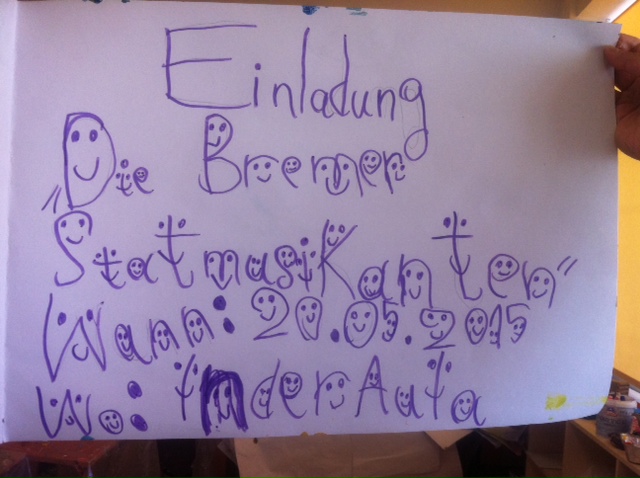 Einladung
„Die Bremer
Statmusikanten“
Wann: 20.05.2015
Wo: in der Aula